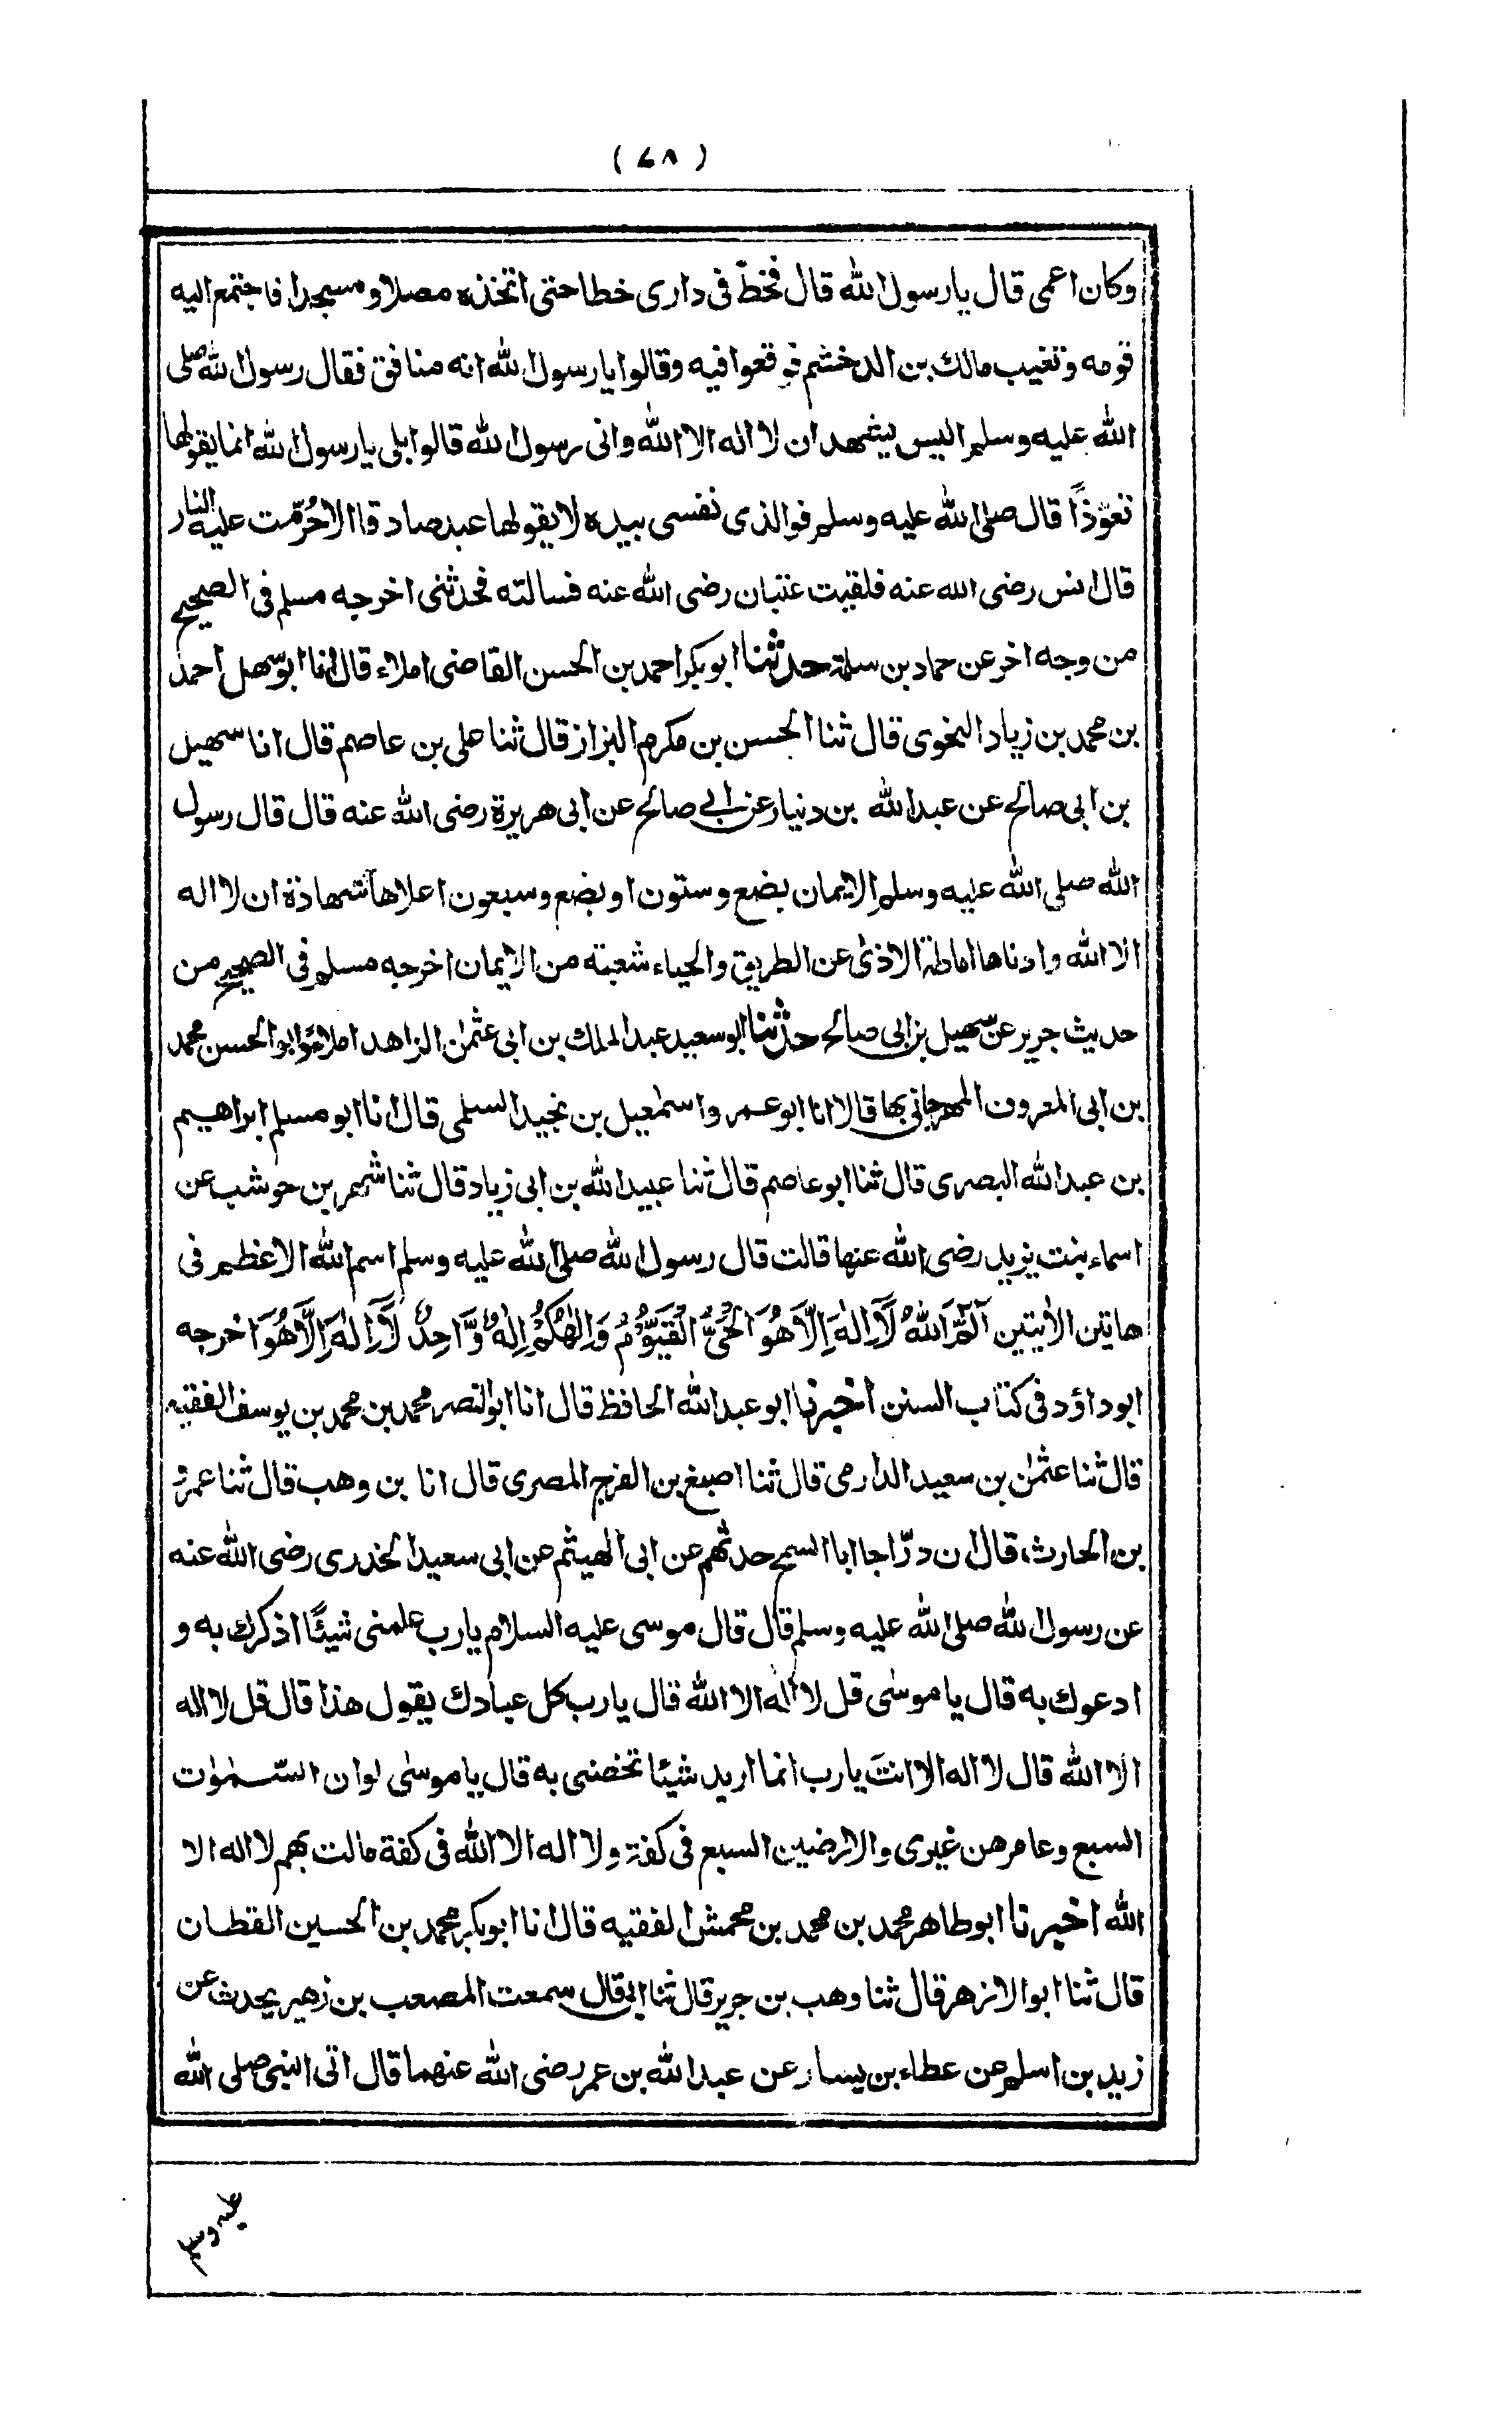 (٧٨)
وكان اعمى قال يا رسول الله قال فخطّ فى دارى خطا حتى اتخذه مصلا ومسجدا فاجتمع اليه
قومه وتغيب مالك بن الدخشم فوقعوا فيه وقالوا يا رسول الله انه منافق فقال رسول الله صلى
الله عليه وسلم اليس يشهد ان لا اله الا الله وانى رسول الله قالوا بلى يا رسول الله انما يقولها
تعوّذاً قال صلى الله عليه وسلم فوالذى نفسى بيده لا يقولها عبد صادقا الا حُرّمت عليه النار
قال انس رضى الله عنه فلقيت عتبان رضى الله عنه فسالته فحدثنى اخرجه مسلم فى الصحيح
من وجه اخر عن حماد بن سلمة حدثنا ابو بكر احمد بن الحسن القاضى املاء قال انا ابو سهل احمد
بن محمد بن زياد النحوى قال ثنا الحسن بن مكرم البزاز قال ثنا على بن عاصم قال انا سهيل
بن ابى صالح عن عبد الله بن دنيار عن ابى صالح عن ابى هريرة رضى الله عنه قال قال رسول
الله صلى الله عليه وسلم الايمان بضع وستون او بضع وسبعون اعلاها شهادة ان لا اله
الا الله وادناها اماطة الاذى عن الطريق والحياء شعبة من الايمان اخرجه مسلم فى الصحيح من
حديث جرير عن سهيل بن ابى صالح حدثنا ابو سعيد عبد الملك بن ابى عثمٰن الزاهد املاءً وابو الحسن محمد
بن ابى المعروف المهرجانى بها قالا انا ابو عمرو اسمٰعيل بن نجيد السلمى قال انا ابو مسلم ابراهيم
بن عبد الله البصرى قال ثنا ابو عاصم قال ثنا عبيد الله بن ابى زياد قال ثنا شهر بن حوشب عن
اسماء بنت يزيد رضى الله عنها قالت قال رسول الله صلى الله عليه وسلم اسم الله الاعظم فى
هاتين الاٰيتين الٓمّٓ اَللّٰهُ لَآ اِلٰهَ اِلَّا هُوَ الْحَىُّ الْقَيُّوْمُ وَاِلٰهُكُمْ اِلٰهٌ وَّاحِدٌ لَآ اِلٰهَ اِلَّا هُوَ اخرجه
ابو داؤد فى كتاب السنن اخبرنا ابو عبد الله الحافظ قال انا ابو النصر محمد بن محمد بن يوسف الفقيه
قال ثنا عثمٰن بن سعيد الدارمى قال ثنا اصبغ بن الفرج المصرى قال انا بن وهب قال ثنا عمرو
بن الحارث قال ان درّاجا ابا السمح حدثهم عن ابى الهيثم عن ابى سعيد الخدرى رضى الله عنه
عن رسول الله صلى الله عليه وسلم قال قال موسى عليه السلام يا رب علمنى شيئًا اذكرك به و
ادعوك به قال يا موسٰى قل لا اله الا الله قال يا رب كل عبادك يقول هذا قال قل لا اله
الا الله قال لا اله الا انتَ يا رب انما اريد شيئا تخصنى به قال يا موسٰى لو ان السّمٰوٰت
السبع وعامرهن غيرى والارضين السبع فى كفة ولا اله الا الله فى كفة مالت بهم لا اله الا
الله اخبرنا ابو طاهر محمد بن محمد بن محمش الفقيه قال انا ابو بكر محمد بن الحسين القطان
قال ثنا ابو الازهر قال ثنا وهب بن جرير قال ثنا ابى قال سمعت المصعب بن زهير يحدث عن
زيد بن اسلم عن عطاء بن يسار عن عبد الله بن عمر رضى الله عنهما قال اتى النبى صلى الله
عليه وسلم